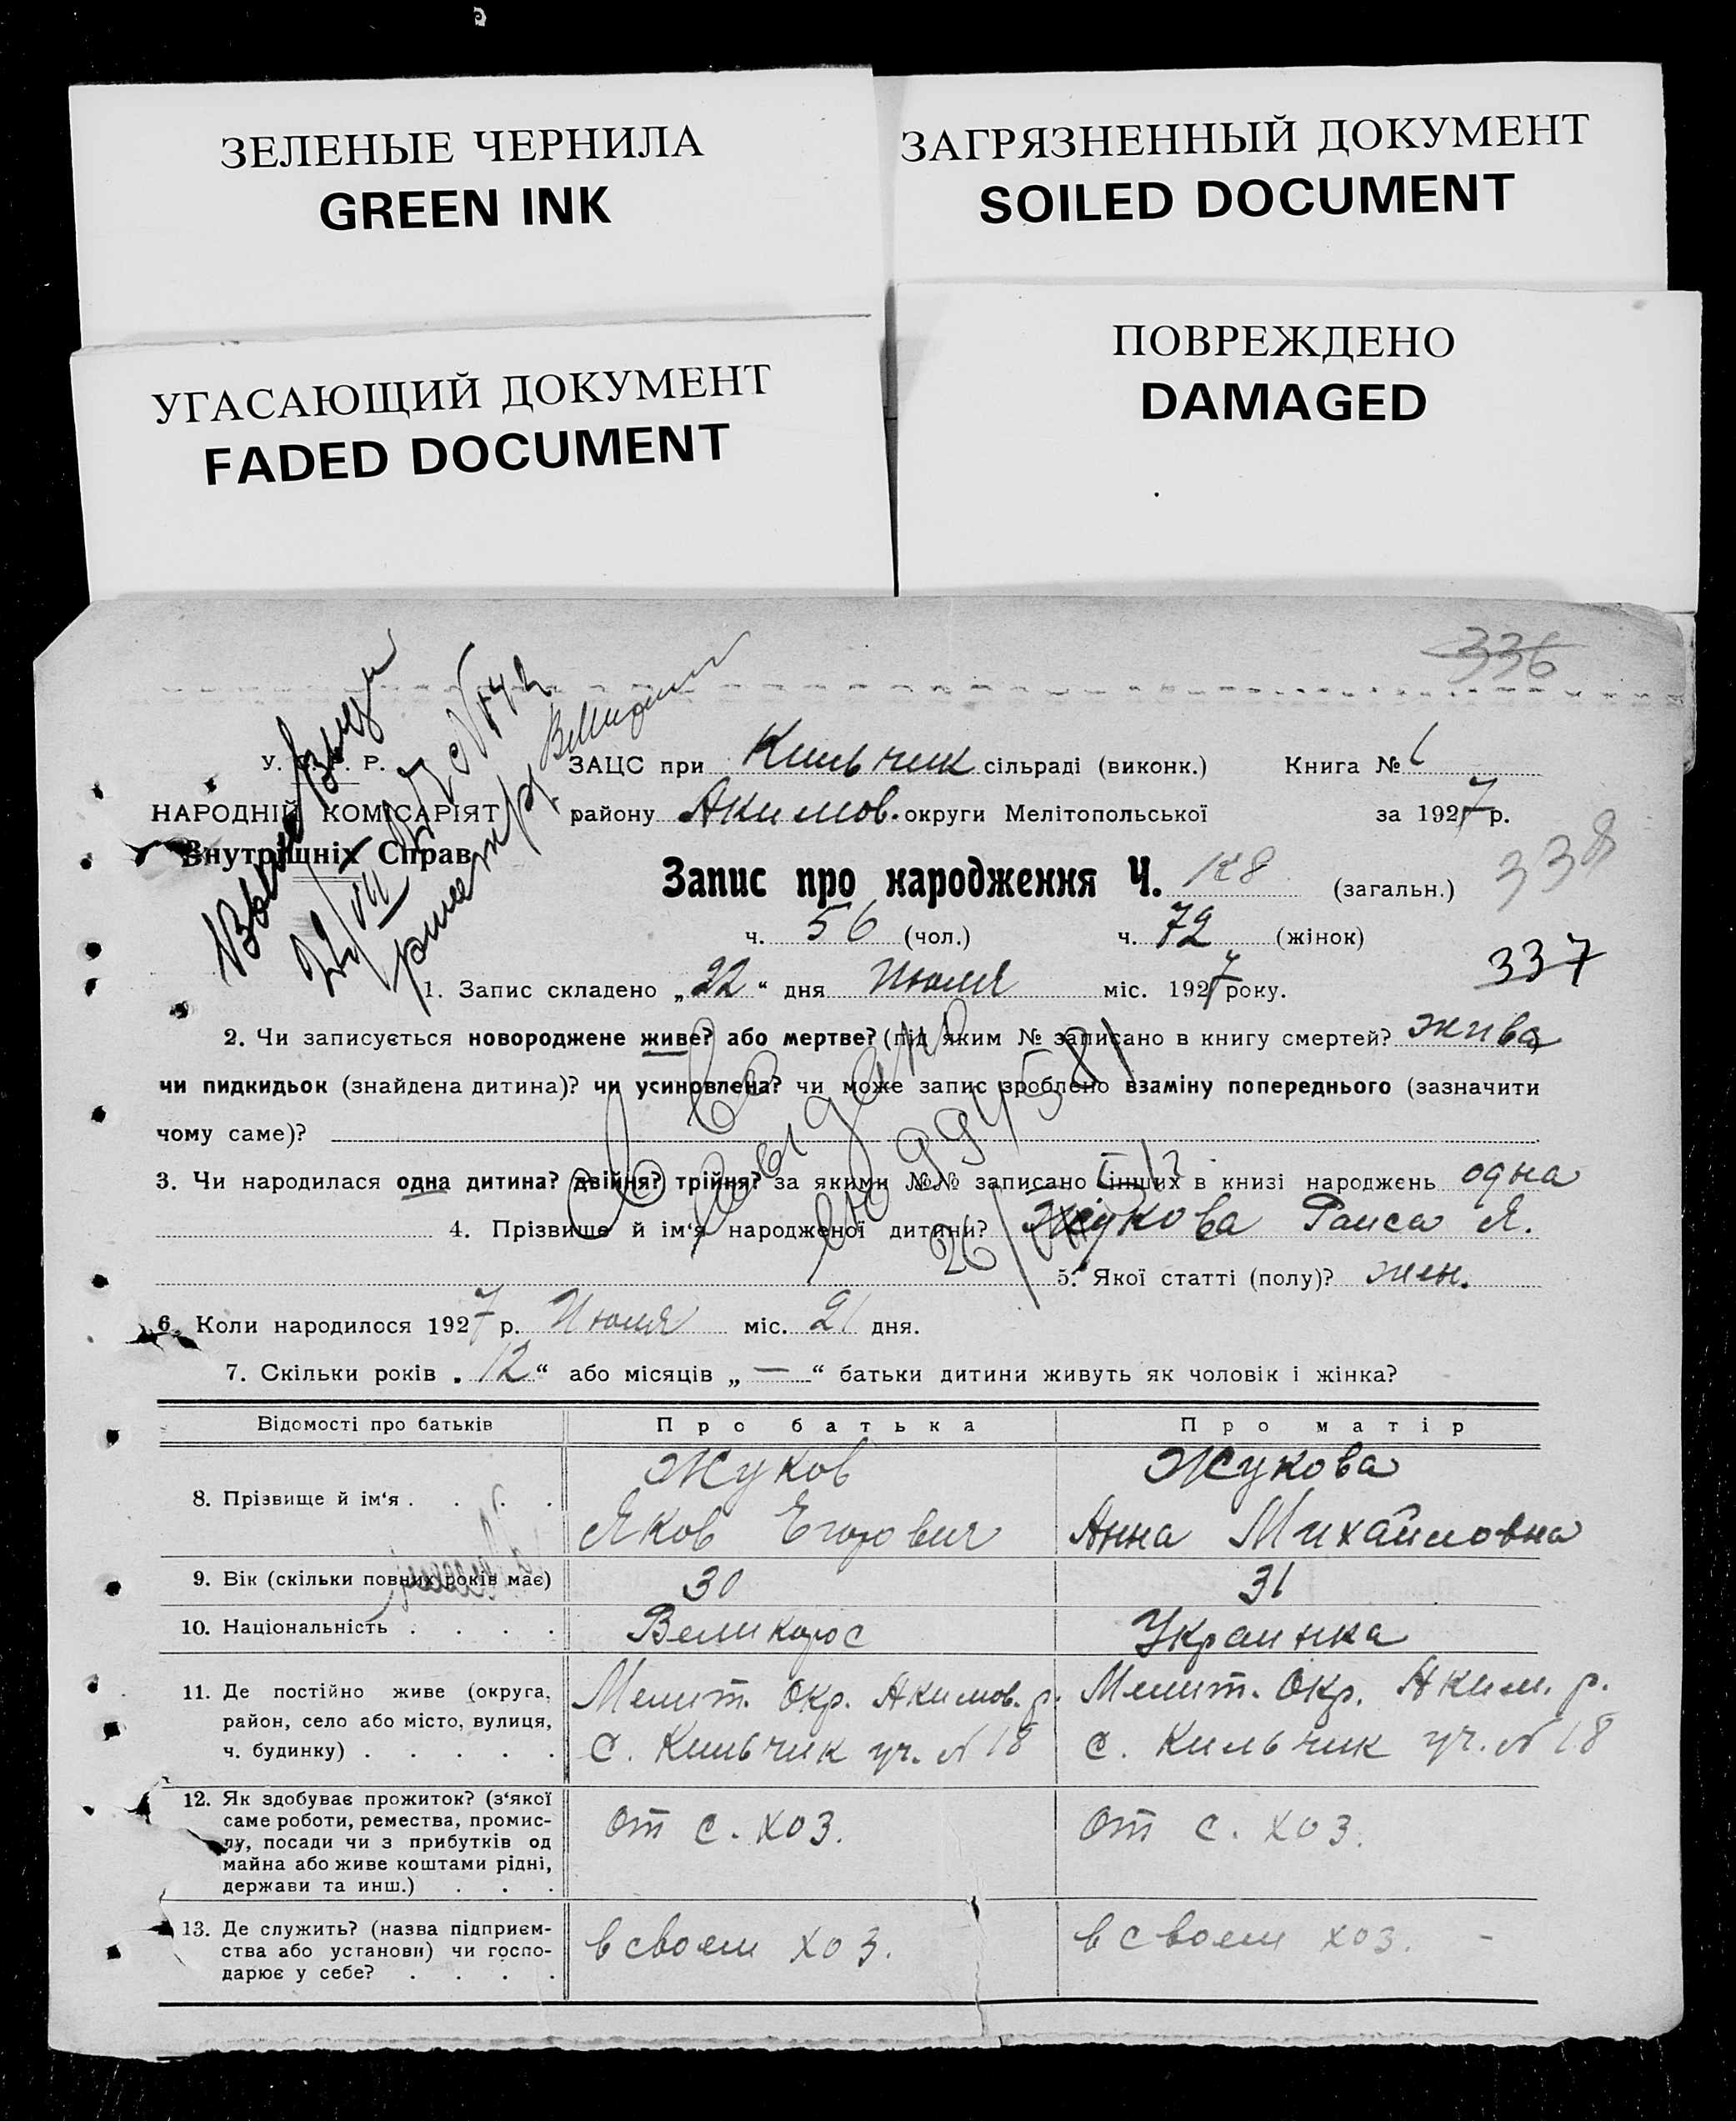 ЗЕЛЕНЫЕ ЧЕРНИЛА
GREEN INK
ЗАГРЯЗНЕННЫЙ ДОКУМЕНТ
SOILED DOCUMENT
УГАСАЮЩИЙ ДОКУМЕНТ
FADED DOCUMENT
ПОВРЕЖДЕНО
DAMAGED
336
У. С. Р. Р.
НАРОДНІЙ КОМІСАРІЯТ
Внутрішніх Справ
ЗАЦС при Кильчик сільраді (виконк.) Книга № 1
району Акимов. округи Мелітопольської за 1927 р.
Запис про народження Ч. 128 (загальн.)
338
ч. 56 (чол.) ч. 72 (жінок)
337
1. Запис складено „22“ дня Июля міс. 1927 року.
2. Чи записується новороджене живе? або мертве? (під яким № записано в книгу смертей? жива
чи пидкидьок (знайдена дитина)? чи усиновлена? чи може запис зроблено взаміну попереднього (зазначити
чому саме)?
3. Чи народилася одна дитина? двійня? трійня? за якими №№ записано інших в книзі народжень одна
4. Прізвище й ім‘я народженої дитини? Жукова Раиса Я.
5. Якої статті (полу)? жен.
6. Коли народилося 1927 р. Июля міс. 21 дня.
7. Скільки років „12“ або місяців „—“ батьки дитини живуть як чоловік і жінка?
Відомості про батьків Про батька Про матір
8. Прізвище й ім‘я . . . . Жуков Жукова
Яков Егорович Анна Михайловна
9. Вік (скільки повних років має) 30 31
10. Національність . . . . Великорос Украинка
11. Де постійно живе (округа, Мелит. Окр. Акимов. р. Мелит. Окр. Аким. р.
район, село або місто, вулиця,
ч. будинку) . . . . . с. Кильчик уч. № 18 с. Кильчик уч. № 18
12. Як здобуває прожиток? (з‘якої
саме роботи, ремества, промис- От с. хоз. От с. хоз.
лу, посади чи з прибутків од
майна або живе коштами рідні,
держави та инш.) . . .
13. Де служить? (назва підприєм-
ства або установи) чи госпо- в своем хоз. в своем хоз. -
дарює у себе? . . . .